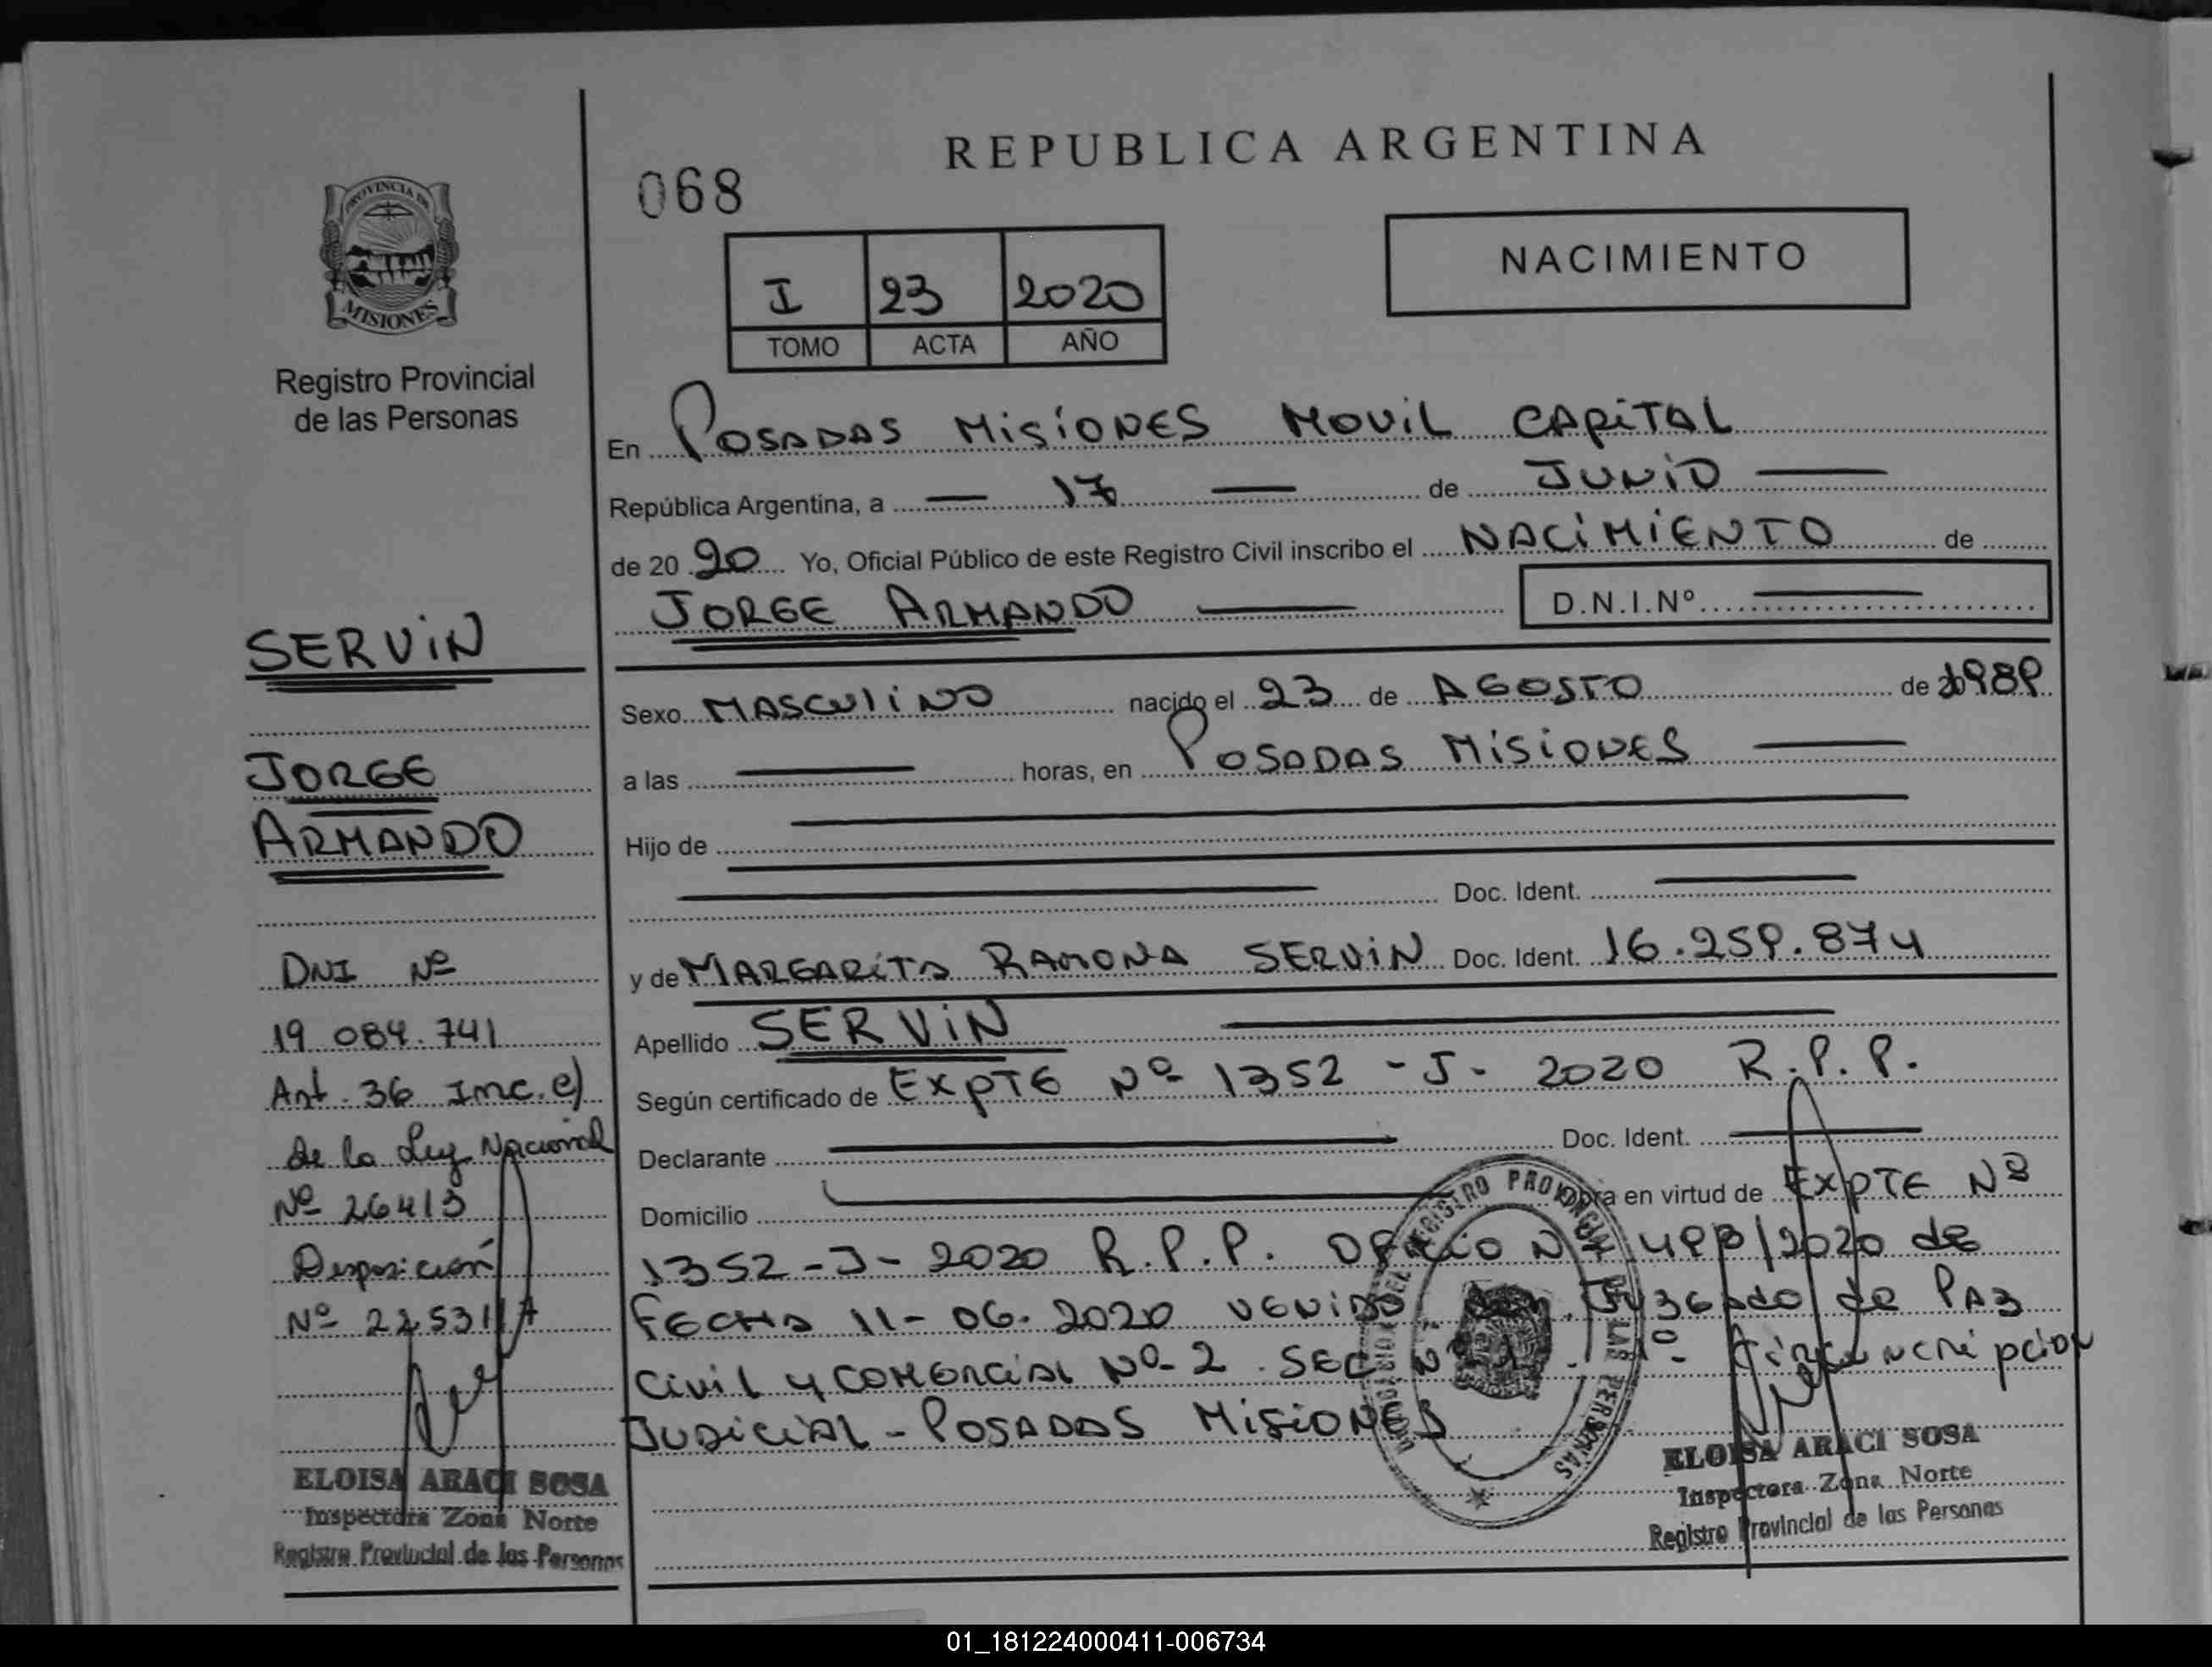 REPUBLICA ARGENTINA
068
PROVINCIA DE
MISIONES
Registro Provincial
de las Personas
NACIMIENTO
I 23 2020
TOMO ACTA AÑO
En POSADAS MISIONES MOVIL CAPITAL
República Argentina, a — 17 — de JUNIO —
de 20 20 Yo, Oficial Público de este Registro Civil inscribo el NACIMIENTO de
JORGE ARMANDO — D.N.I.Nº —
Sexo MASCULINO nacido el 23 de AGOSTO de 1989
a las — horas, en POSADAS MISIONES —
Hijo de —
— Doc. Ident. —
y de MARGARITA RAMONA SERVIN Doc. Ident. 16.259.874
Apellido SERVIN —
Según certificado de EXPTE Nº 1352 - J - 2020 R.P.P.
Declarante — Doc. Ident. —
Domicilio — Obra en virtud de EXPTE Nº
1352 - J - 2020 R.P.P. OFICIO Nº /2020 de
FECHA 11-06-2020 VENIDO Juzgado de PAZ
Civil y COMERCIAL Nº 2 SEC Nº 1 1º Circunscripcion
JUDICIAL - POSADAS MISIONES
SERVIN
JORGE
ARMANDO
DNI Nº
19.084.741
Art. 36 Inc. c)
de la Ley Nacional
Nº 26413
Disposición
Nº 2253
ELOISA ARACI SOSA
Inspectora Zona Norte
Registro Provincial de las Personas
ELOISA ARACI SOSA
Inspectora Zona Norte
Registro Provincial de las Personas
01_181224000411-006734